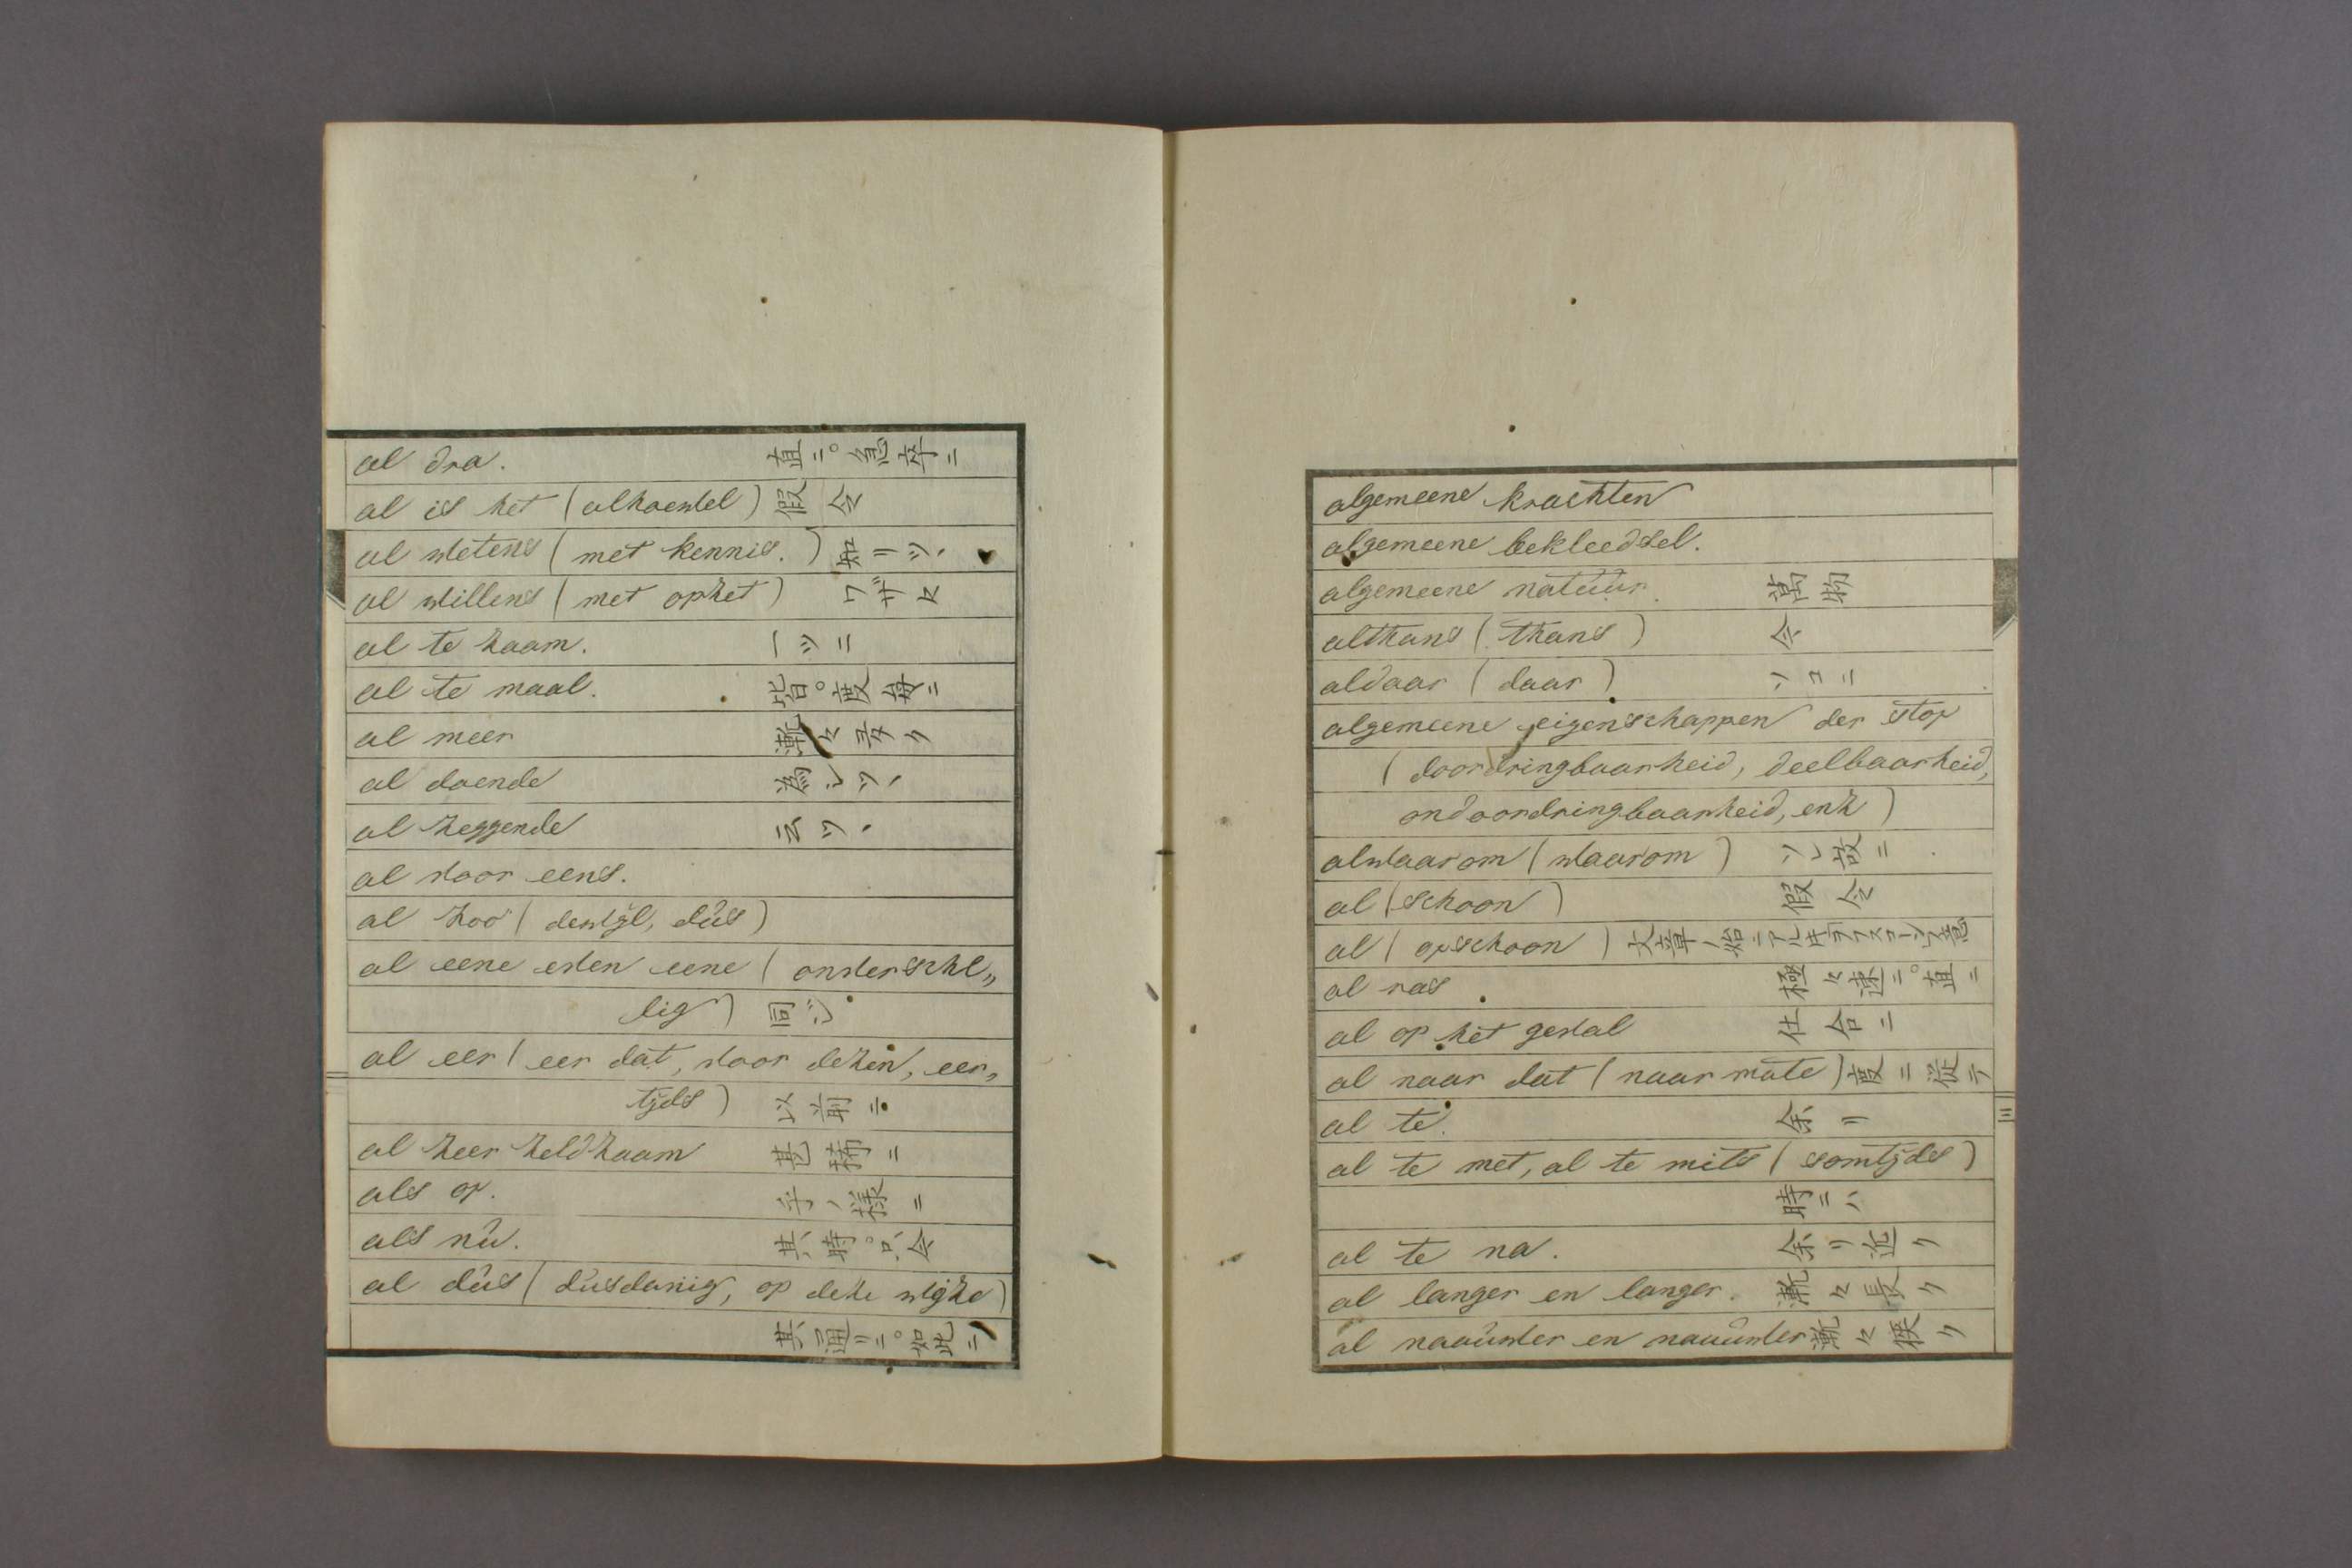 al dra. 直ニ。急卒ニ
al is het (alhoewel) 假令
al wetens (met kennis.) 知リツヽ
al willens (met ophet) ワザト
al te zaam. 一ツニ
al te maal. 皆。度毎ニ
al meer 漸々多ク
al doende 為シツヽ
al zeggende 云ツヽ
al voor eens.
al zoo (dewijl, dùs)
al eene even eene (onverschil„
lig) 同ジ
al eer (eer dat, voor dezen, eer„
tijds) 以前ニ
al zeer zeldzaam 甚稀ニ
als op. ノ様ニ
als nù. 其時。只今
al dùs (dùsdanig, op deze wijze)
其通リニ。如此ニ
algemeene krachten
algemeene bekleedsel.
algemeene natùùr. 萬物
althans (thans) 今
aldaar (daar) ソコニ
algemeene eigenschappen der stof
(doordringbaarheid, deelbaarheid,
ondoordringbaarheid, enz)
alwaarom (waarom) ソレ故ニ
al (schoon) 假令
al (opschoon) 文章ノ始ニアル
al ras 極々速ニ。直ニ
al op het geval 仕合ニ
al naar dat (naar mate) 度ニ従テ
al te. 余リ
al te met, al te mits (somtijds)
時ニハ
al te na. 余リ近ク
al langer en langer. 漸々長ク
al naaùwer en naauùwer 漸々狭ク